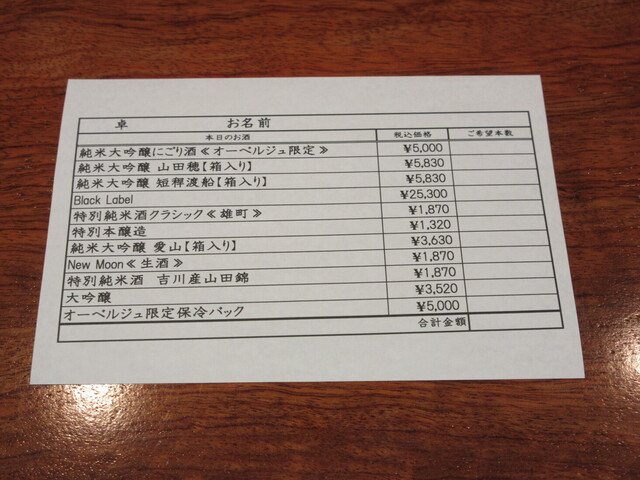 卓 お名前
本日のお酒 税込価格 ご希望本数
純米大吟醸にごり酒≪オーベルジュ限定≫ ¥5,000
純米大吟醸 山田穂【箱入り】 ¥5,830
純米大吟醸 短稈渡船【箱入り】 ¥5,830
Black Label ¥25,300
特別純米酒クラシック≪雄町≫ ¥1,870
特別本醸造 ¥1,320
純米大吟醸 愛山【箱入り】 ¥3,630
New Moon≪生酒≫ ¥1,870
特別純米酒 吉川産山田錦 ¥1,870
大吟醸 ¥3,520
オーベルジュ限定保冷バック ¥5,000
合計金額